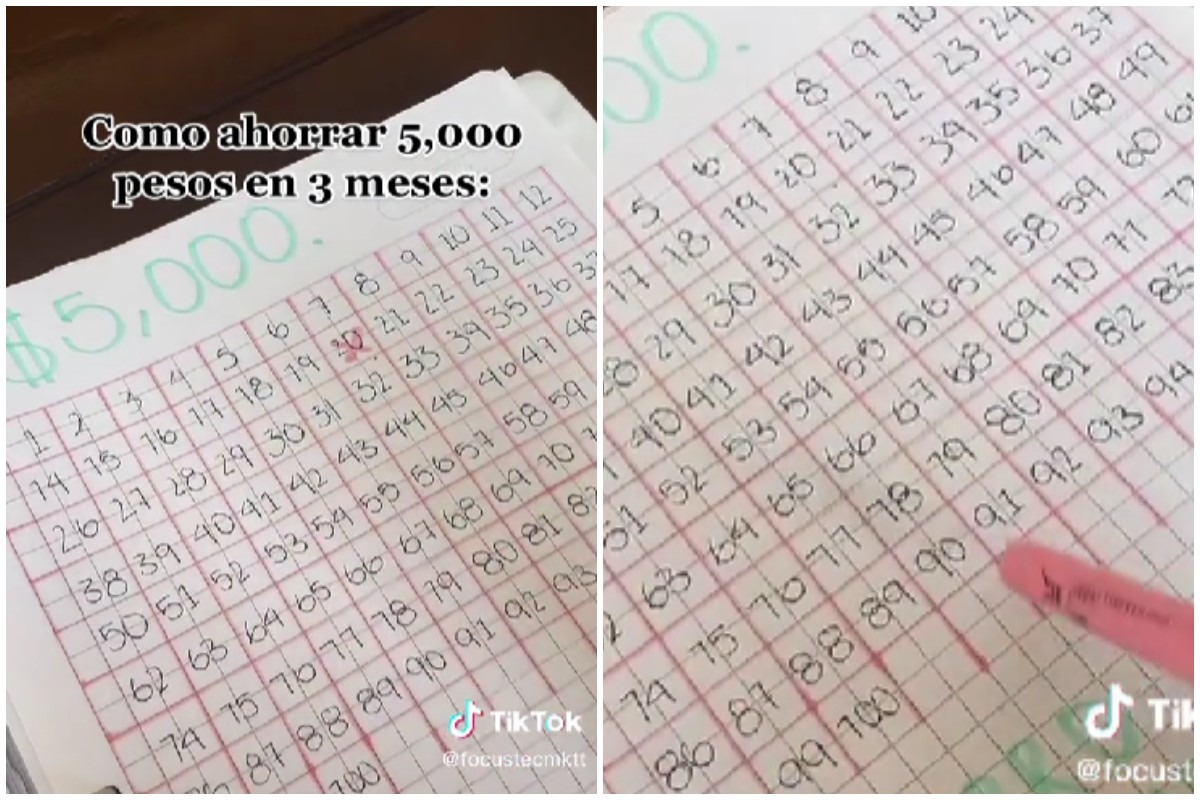 Como ahorrar 5,000
pesos en 3 meses:
$5,000.
1 2 3 4 5 6 7 8 9 10 11 12
14 15 16 17 18 19 20 21 22 23 24 25
26 27 28 29 30 31 32 33 34 35 36 37
38 39 40 41 42 43 44 45 46 47 48
50 51 52 53 54 55 56 57 58 59
62 63 64 65 66 67 68 69 70
74 75 76 77 78 79 80 81 82
87 88 89 90 91 92 93
100
TikTok
@focustecmktt
00.
5 6 7 8 9 10
17 18 19 20 21 22 23 24
29 30 31 32 33 34 35 36 37
40 41 42 43 44 45 46 47 48 49
51 52 53 54 55 56 57 58 59 60
63 64 65 66 67 68 69 70 71 72
74 75 76 77 78 79 80 81 82 83
86 87 88 89 90 91 92 93 94
99 100
Tik
@focust